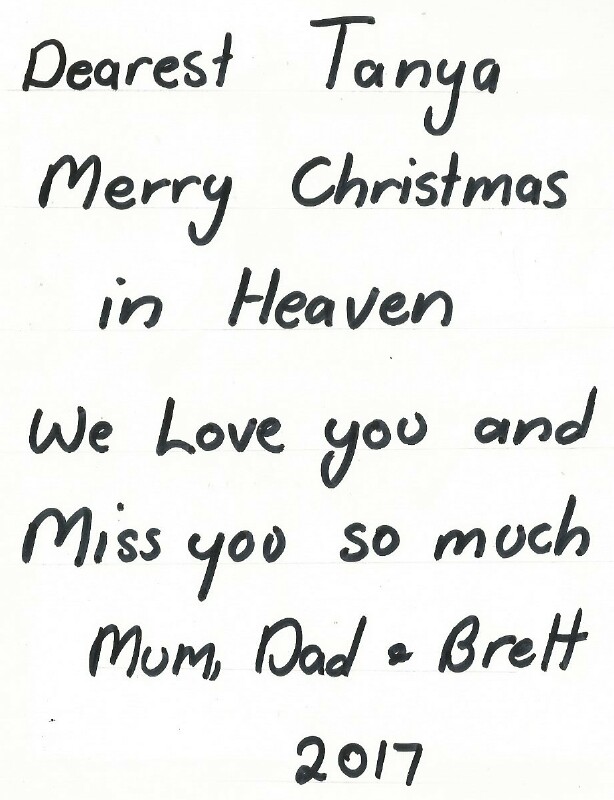 Dearest Tanya
Merry Christmas
in Heaven
We Love you and
Miss you so much
Mum, Dad & Brett
2017